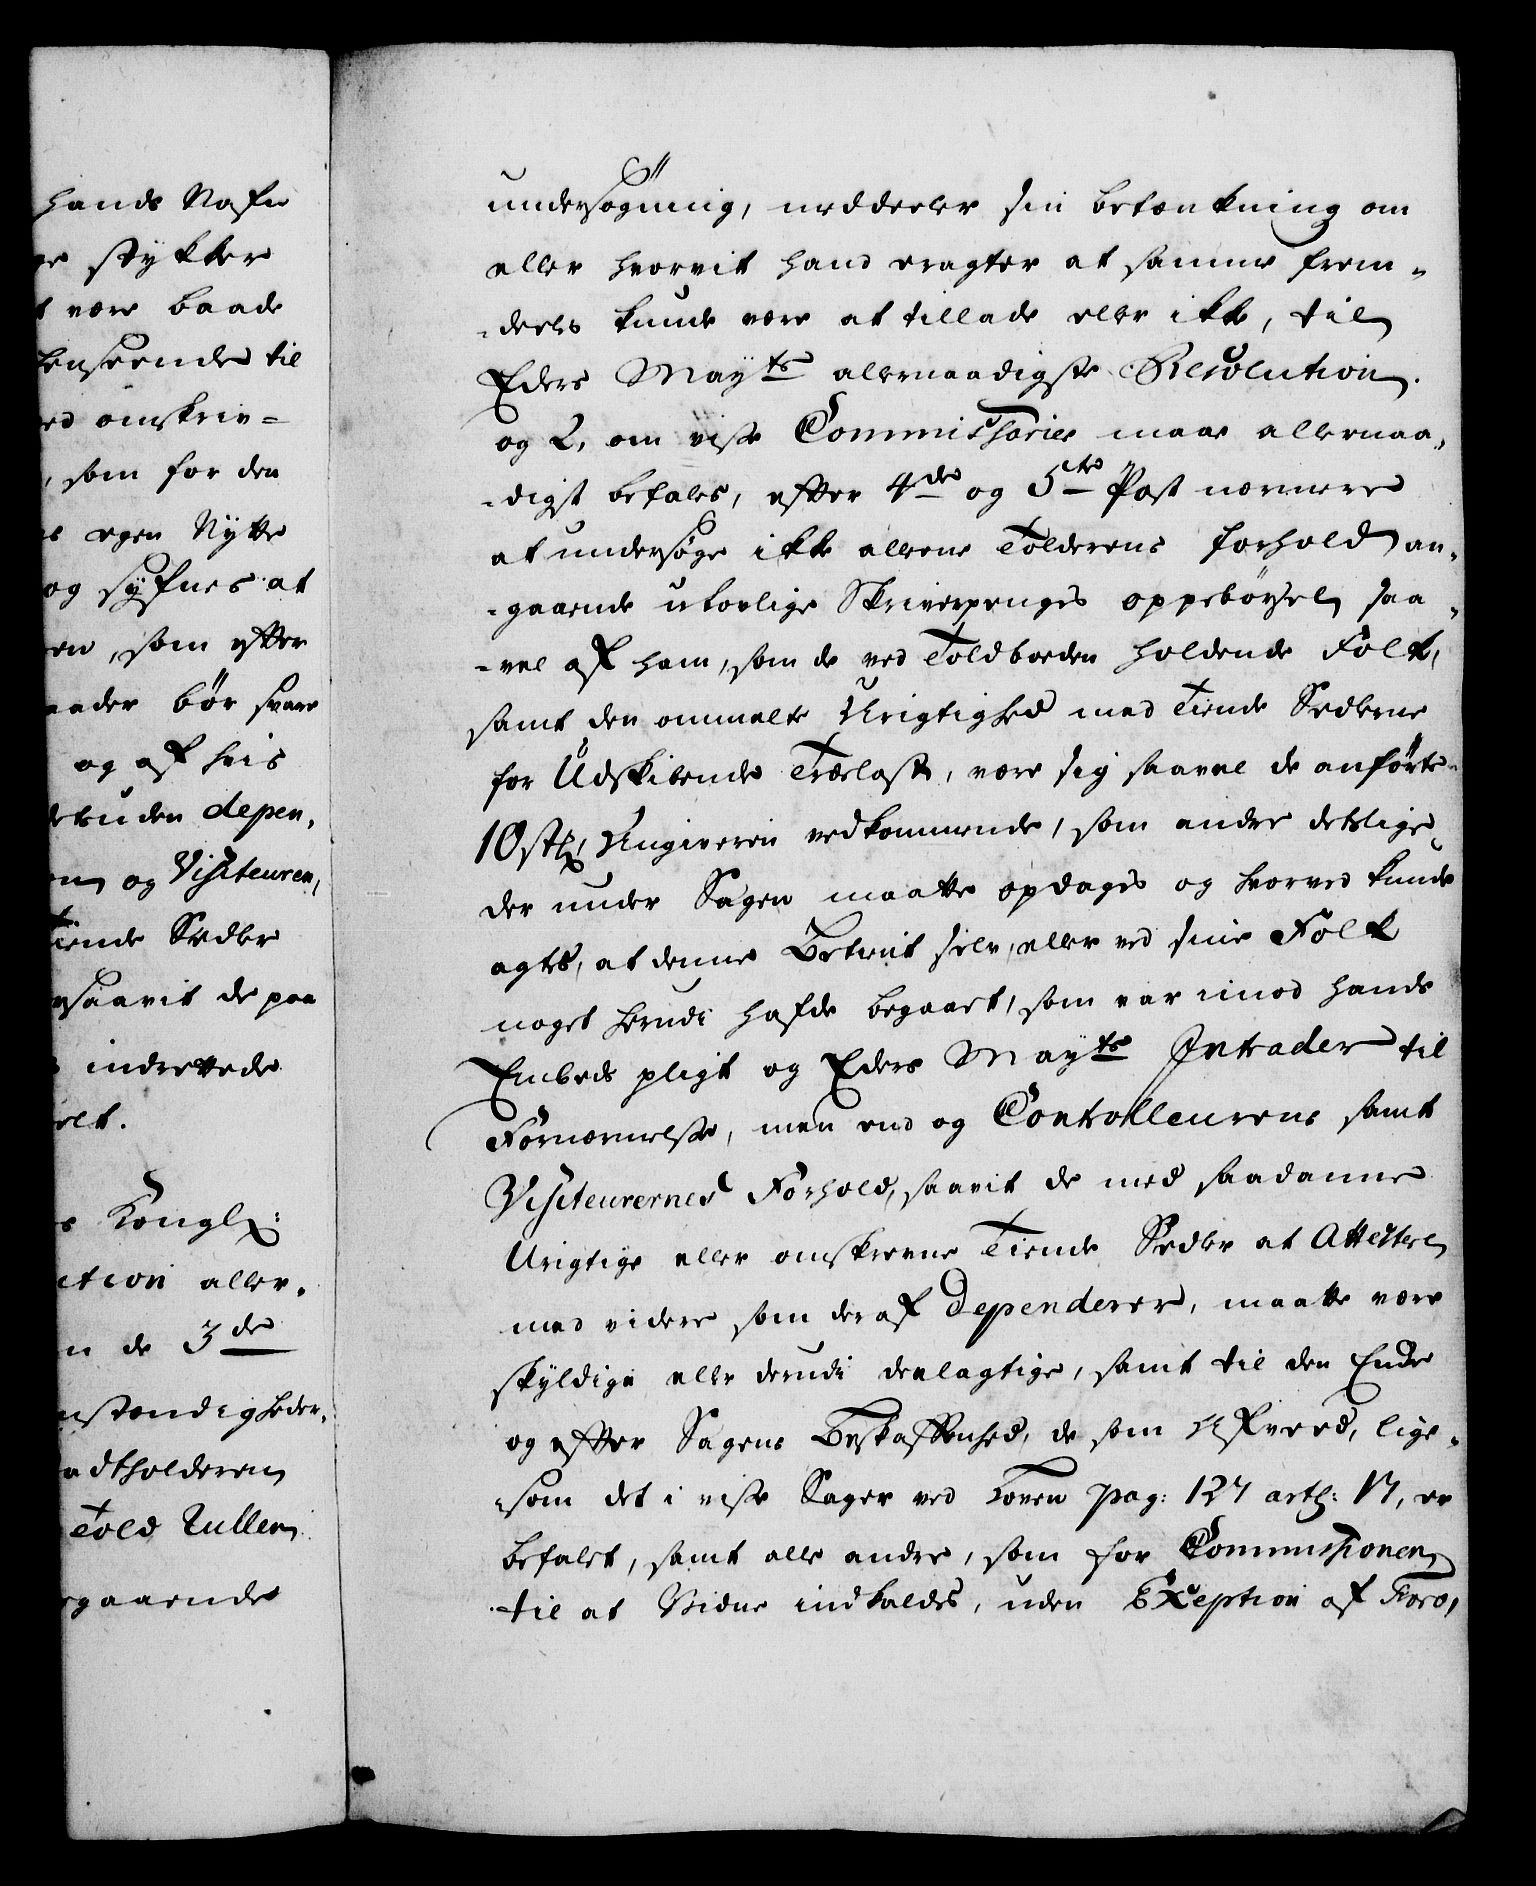 hands Nafn
stykker
være baade
henseende til
omskriv=
, som for den
egen Nytte
og syfnes at
en, som efter
aader bør svare
og af hvis
desuden depen,
og Visiteuren,
Tiende Sedler
saavit de paa
indrettede
elt.
Kongl:
ction aller,
de 3de
mstændigheder,
adtholderen
Told Rullen
gaaende
undersøgning, meddeeler sin betænkning om
eller hvorvit hand eragter at samme frem„
-deeles kunde være at tillade eller ikke, til
Eders Mayts allernaadigste Resolution.
og 2, om visse Commissarier maae allernaa„
-digst befales, efter 4de og 5te Post nærmere
at undersøge ikke alleene Tolderens forhold an„
-gaaende ulovlige Skriverpenges oppebørsel saa„
-vel af ham, som de ved Toldboeden holdende Folk,
samt den ommelte Urigtighed med Tiende Sedlerne
for Udskibende Trælast, være sig saavel de anførte
10 st: Angiveren vedkommende, som andre deslige
der under Sagen maatte opdages og hvorved kunde
agtes, at denne Betient selv, eller ved sine Folk
noget herudi hafde begaaet, som var imod hands
Embeds pligt og Eders Mayts Intrader til
Fornærmelse, men end og Controlleurens samt
Visiteurernes Forhold, saavit de med saadanne
Urigtige eller omskrevne Tiende Sedler at Attestere
med videre som deraf dependerer, maatte være
skyldige eller derudi deelagtige, samt til den Ende
og efter Sagens Beskaffenhed, de som Afveed, lige„
som det i visse Sager ved Loven pag: 127 art: 17, er
befalet, samt alle andre, som for Commissionen
til at Vidne indkaldes, uden Exception af Foro,